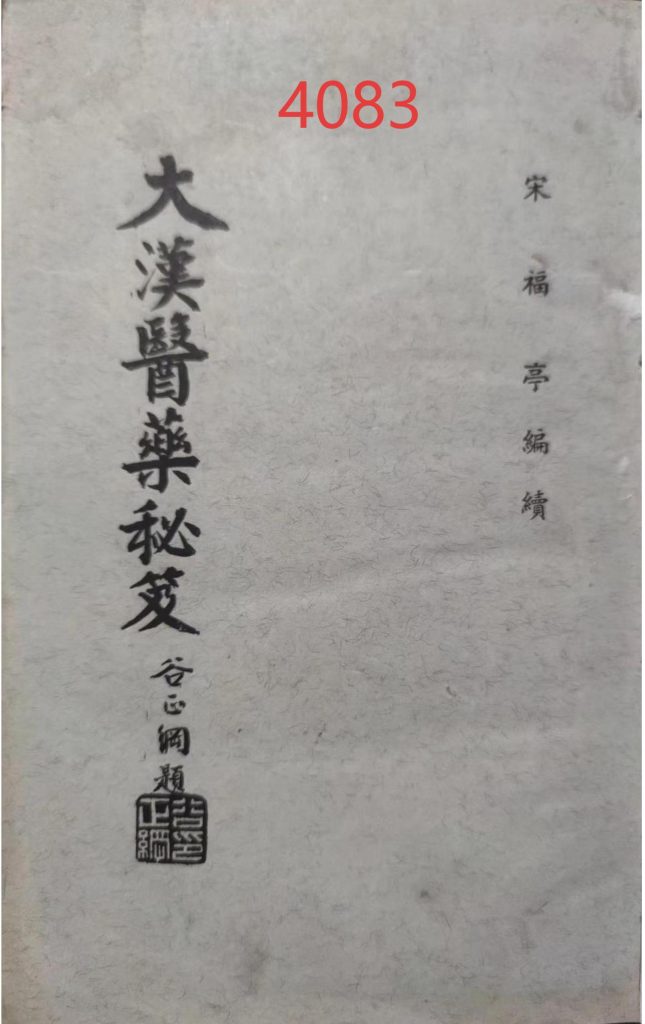 4083
宋福亭編續
大漢醫藥秘笈
谷正綱題
谷印正綱